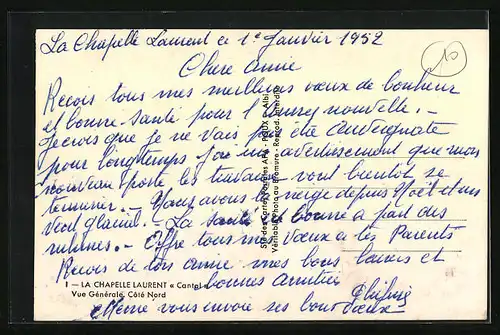 La Chapelle Laurent ce 1e Janvier 1952
Chère amie
Reçois tous mes meilleurs vœux de bonheur
et bonne santé pour l'année nouvelle.
Je crois que je ne vais pas être Auvergnate
pour longtemps j'ai un avertissement que mon
nouveau poste les travaux vont bientôt se
terminer. - Nous avons la neige depuis Noël et un
vent glacial. - La santé est bonne à part des
rhumes. - Offre tous mes vœux à tes Parents
Reçois de ton amie mes bons baisers et
bonnes amitiés
Mémé vous envoie ses bons vœux
Sté des Cartes Postales APA - POUX - Albi
Véritable Photo au Bromure - Reprod. interdite
1 — LA CHAPELLE LAURENT « Cantal »
Vue Générale, Côté Nord